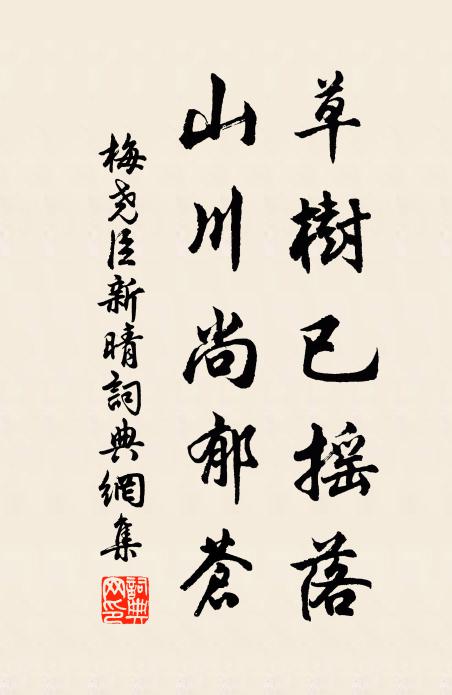 草樹已摇落
山川尚郁蒼
梅尧臣新晴詞典網集
詞典网印